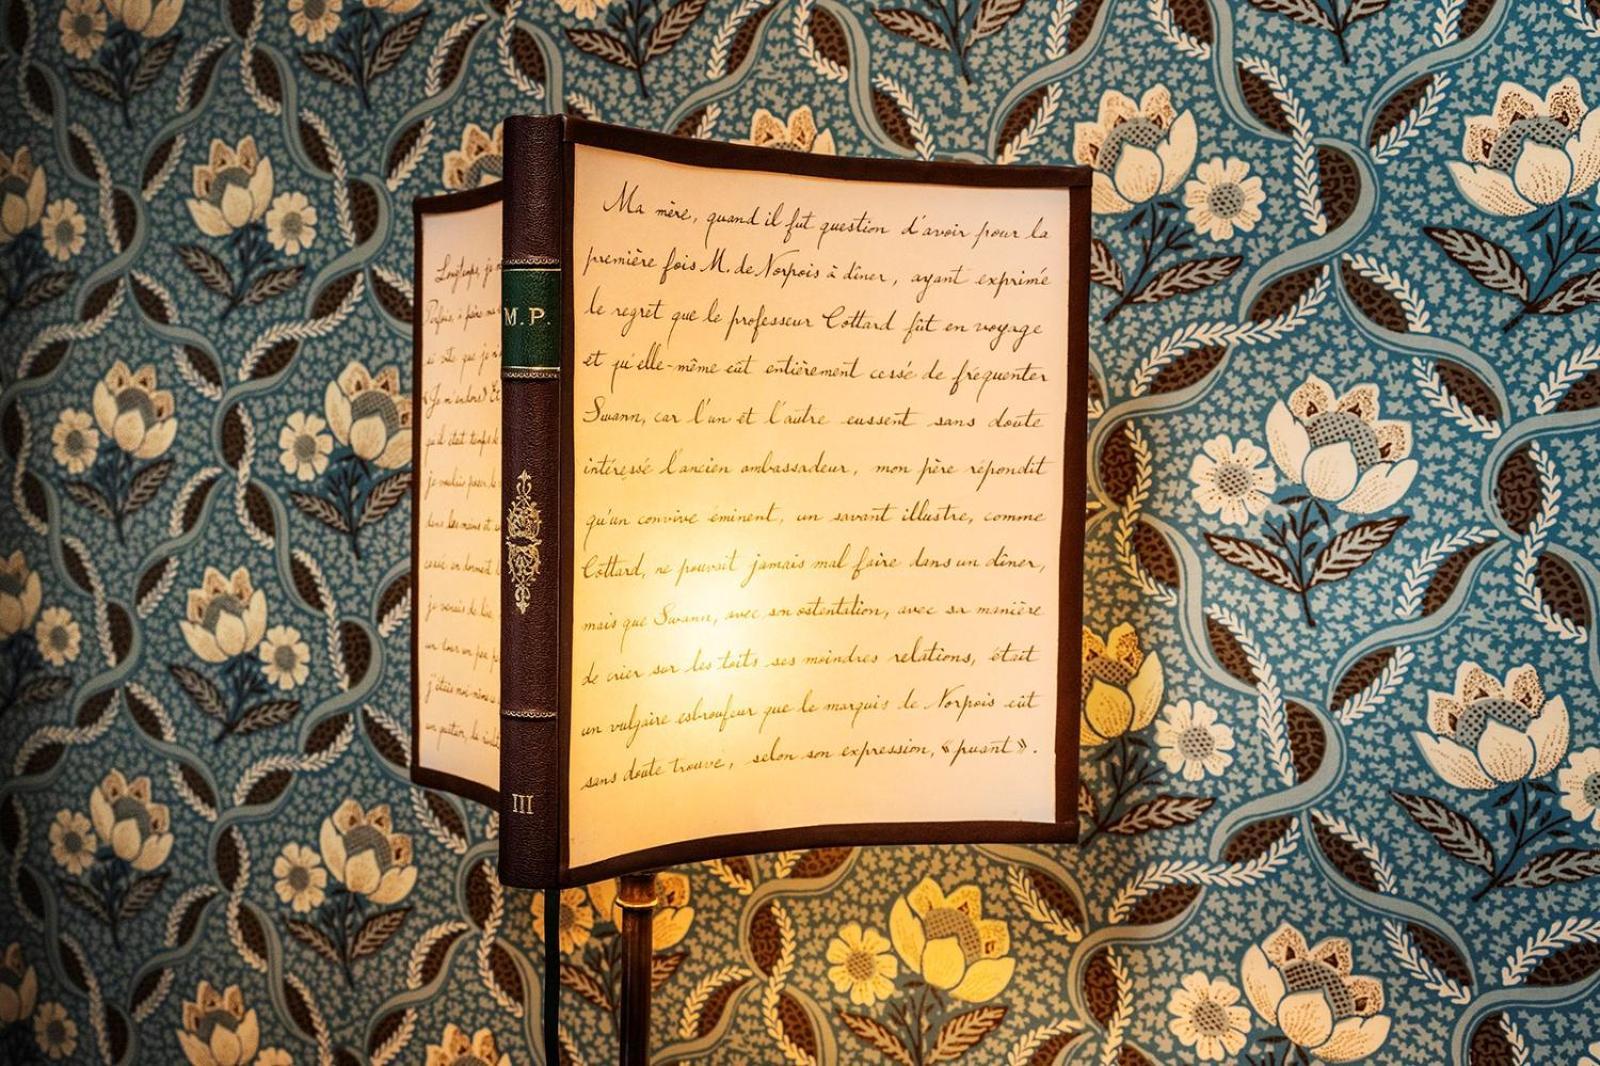 Longtemps, je
Parfois, à peine ma
si vite que je n
«Je m'endors» Et
qu'il était temps de
je voulais poser le
dans les mains et
cessé en dormant
je venais de lire,
un tour un peu p
j'étais moi-même
un quatuor, la rival
M.P.
III
Ma mère, quand il fut question d'avoir pour la
première fois M. de Norpois à dîner, ayant exprimé
le regret que le professeur Cottard fût en voyage
et qu'elle-même eût entièrement cessé de fréquenter
Swann, car l'un et l'autre eussent sans doute
intéressé l'ancien ambassadeur, mon père répondit
qu'un convive éminent, un savant illustre, comme
Cottard, ne pouvait jamais mal faire dans un dîner,
mais que Swann, avec son ostentation, avec sa manière
de crier sur les toits ses moindres relations, était
un vulgaire esbroufeur que le marquis de Norpois eût
sans doute trouvé, selon son expression, «puant».